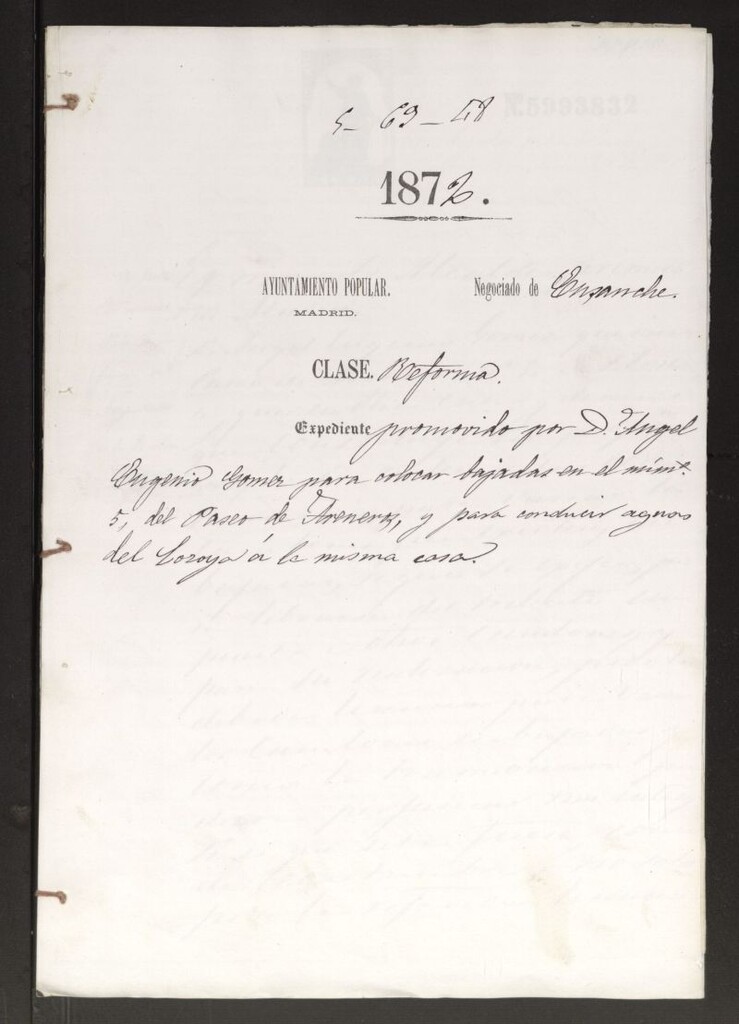 5-69-48
1872.
AYUNTAMIENTO POPULAR. Negociado de Ensanche.
MADRID.
CLASE. Reforma.
Expediente promovido por D. Angel
Eugenio Gomez para colocar bajadas en el núm.º
5, del Paseo de Areneros, y para conducir aguas
del Lozoya á la misma casa.